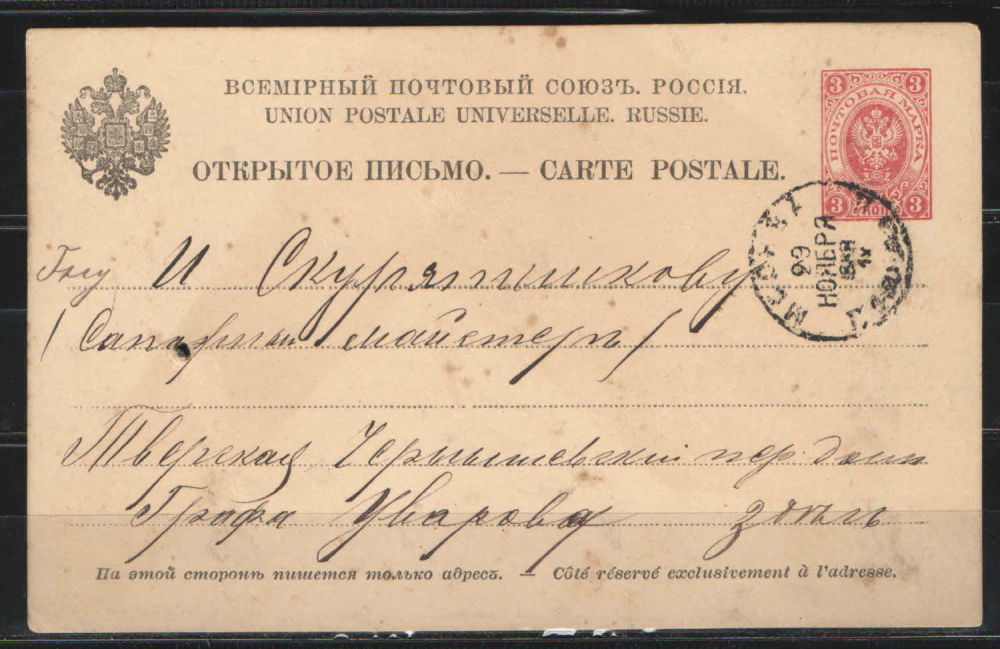 ВСЕМІРНЫЙ ПОЧТОВЫЙ СОЮЗЪ. РОССІЯ.
UNION POSTALE UNIVERSELLE. RUSSIE.
ОТКРЫТОЕ ПИСЬМО. — CARTE POSTALE.
3 3
ПОЧТОВАЯ МАРКА
3 3
МОСКВА
29
НОЯБРЯ
И
(майстеръ)
Тверская, Чернышевскій пер. домъ
Графа Уварова здѣсь
На этой сторонѣ пишется только адресъ. — Côté réservé exclusivement à l'adresse.